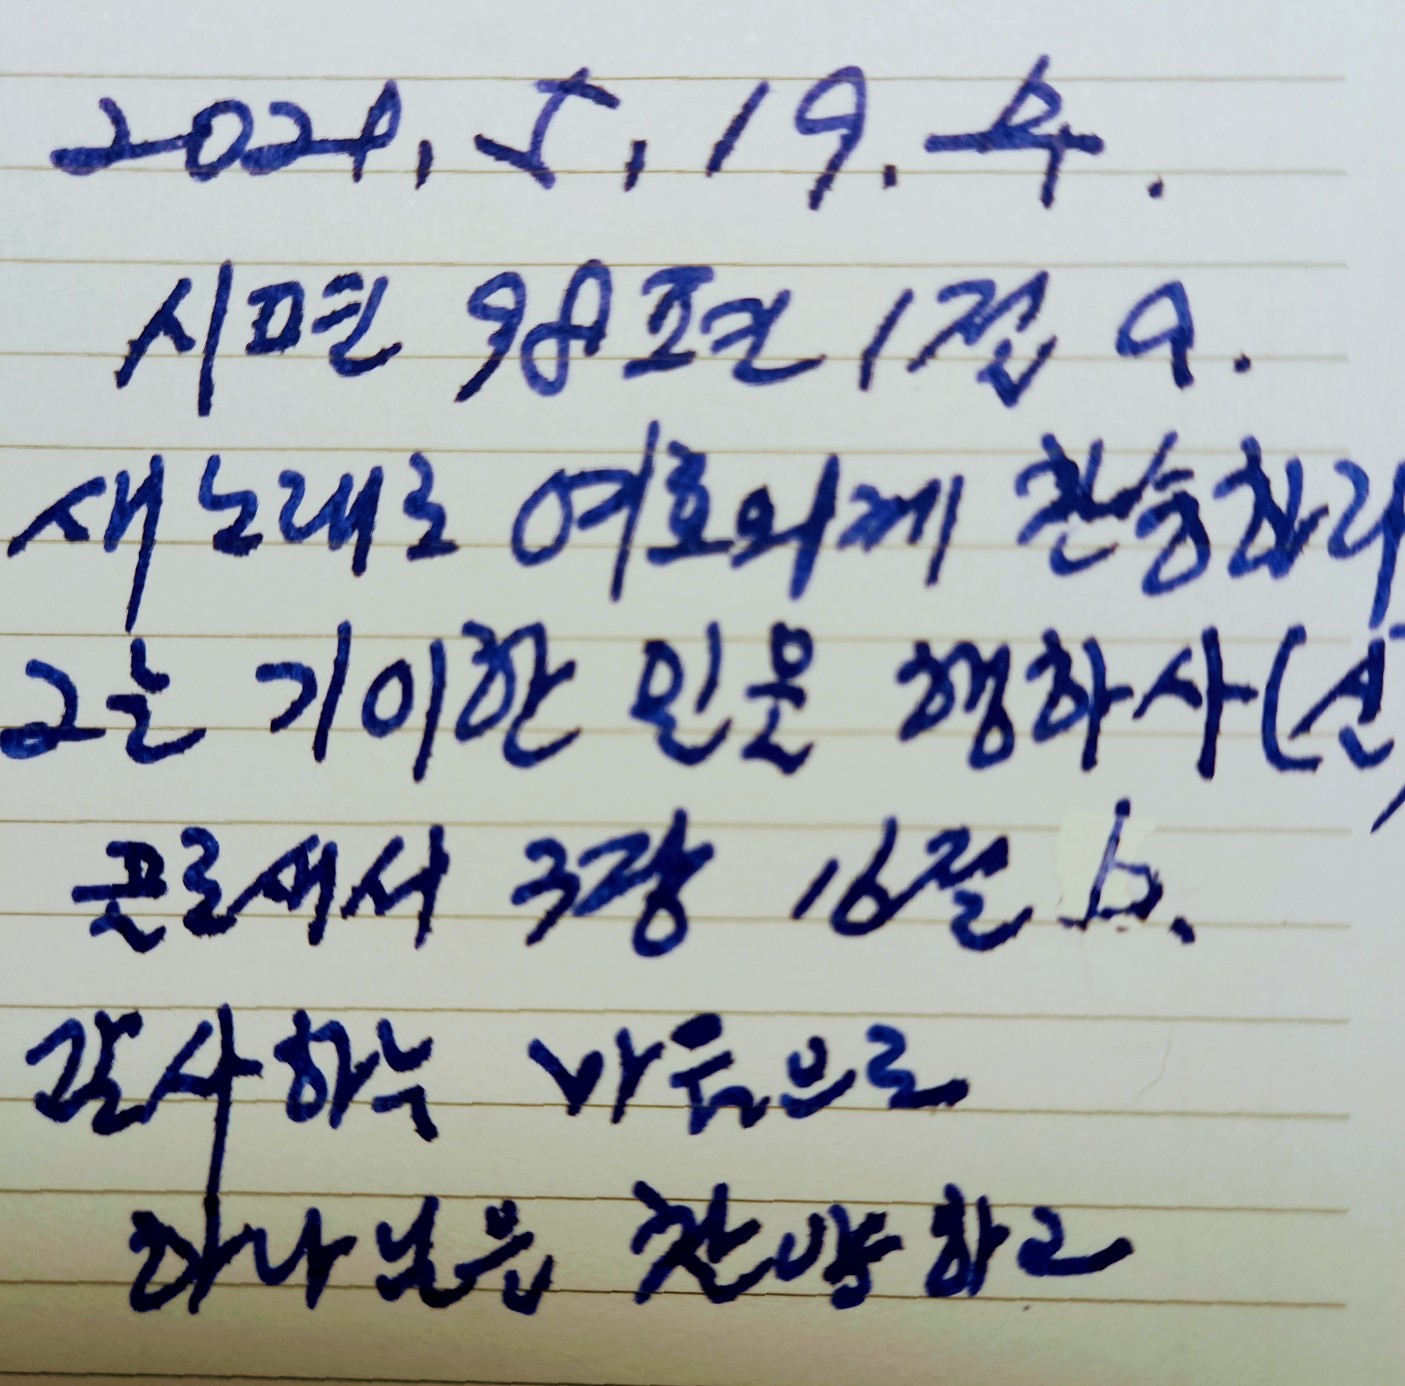 2021. 5. 19. 수.
시편 98편 1절 a.
새 노래로 여호와께 찬송하라
그는 기이한 일을 행하사 (
골로새서 3장 16절 b.
감사하는 마음으로
하나님을 찬양하고